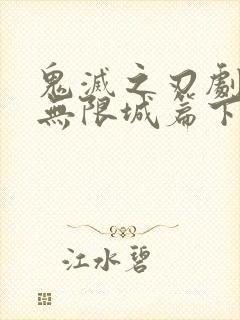 鬼滅之刃劇
無限城篇下
江水碧